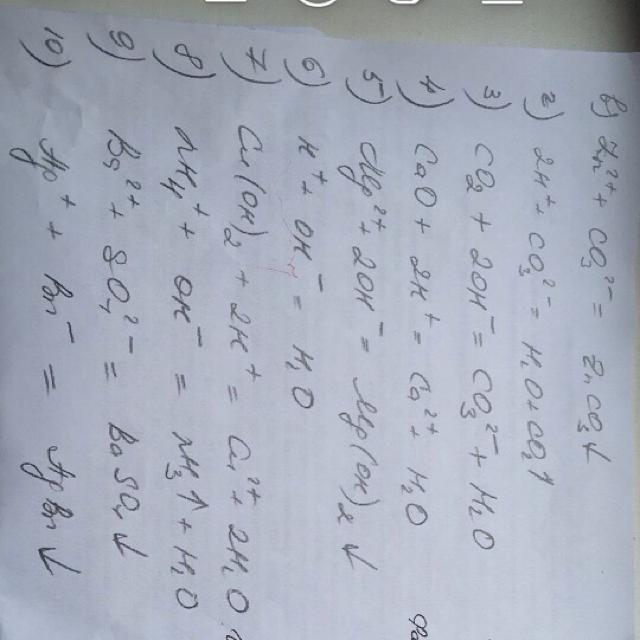 1) Zn²⁺ + CO₃²⁻ = ZnCO₃↓
2) 2H⁺ + CO₃²⁻ = H₂O + CO₂↑
3) CO₂ + 2OH⁻ = CO₃²⁻ + H₂O
4) CaO + 2H⁺ = Ca²⁺ + H₂O
5) Mg²⁺ + 2OH⁻ = Mg(OH)₂↓
6) H⁺ + OH⁻ = H₂O
7) Cu(OH)₂ + 2H⁺ = Cu²⁺ + 2H₂O
8) NH₄⁺ + OH⁻ = NH₃↑ + H₂O
9) Ba²⁺ + SO₄²⁻ = BaSO₄↓
10) Ag⁺ + Br⁻ = AgBr↓